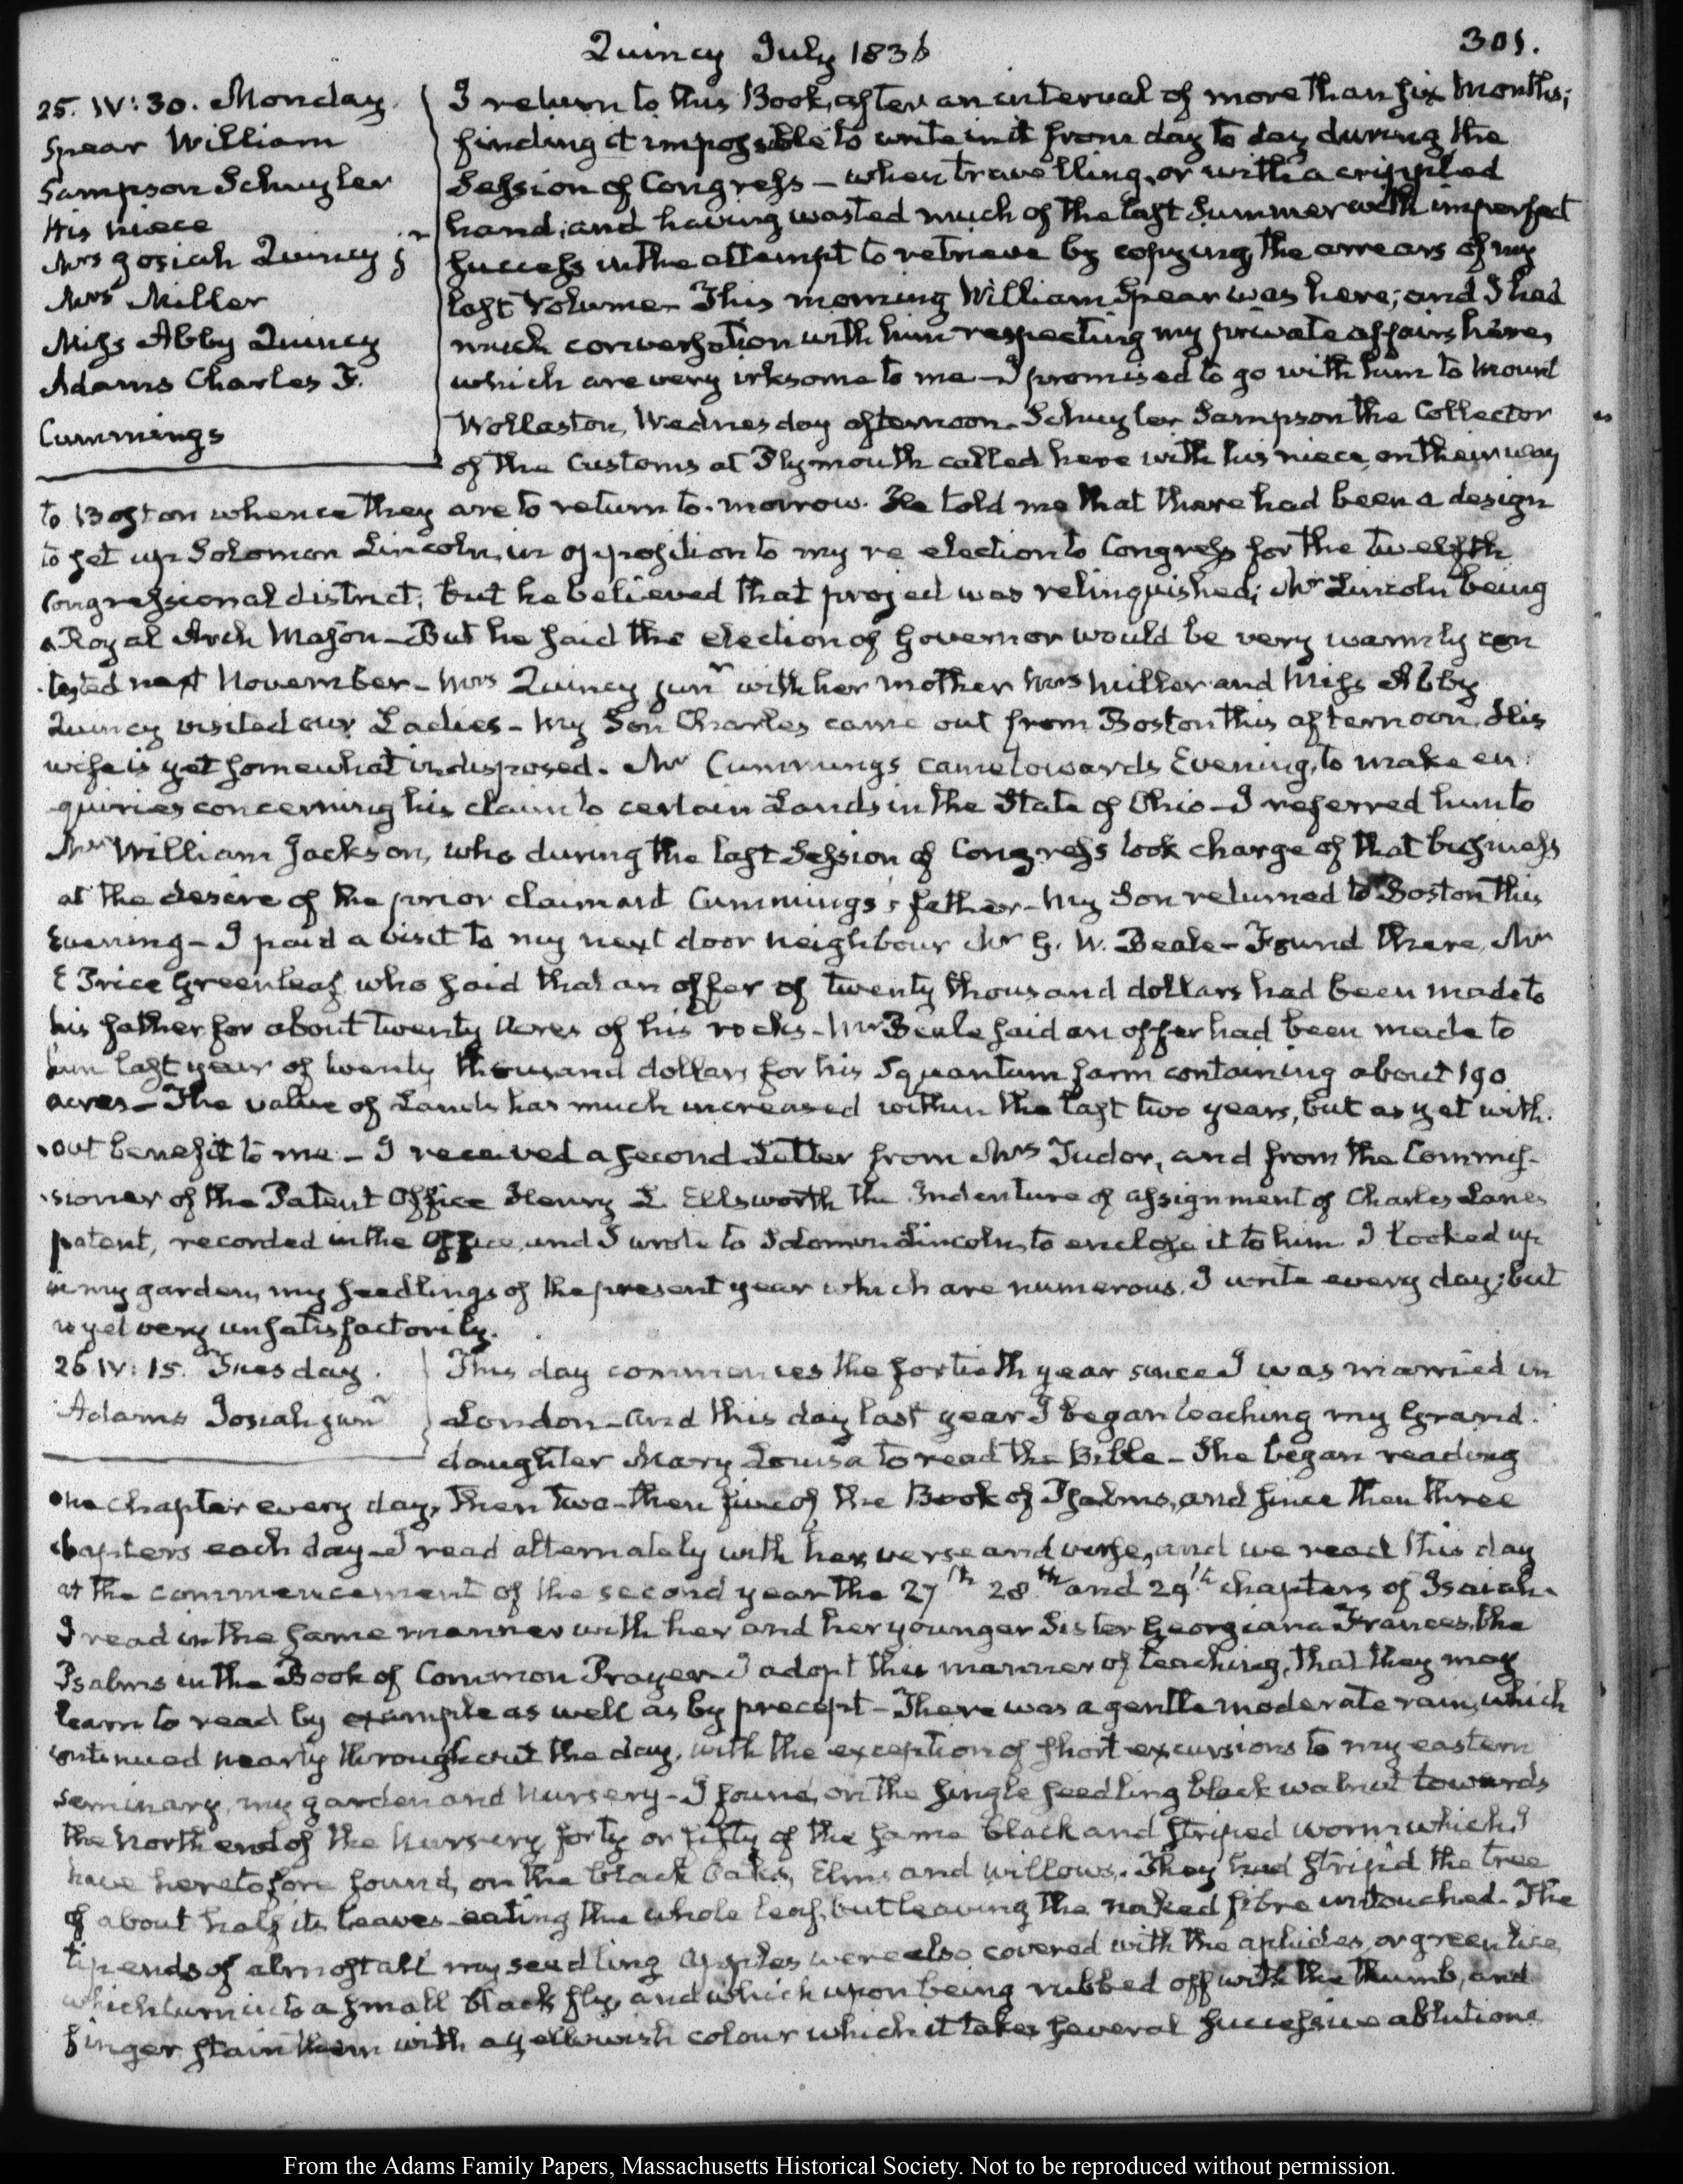 Quincy July 1836
301.
25. IV:30. Monday.
Spear William
Sampson Schuyler
His niece
Mrs Josiah Quincy jr
Mrs Miller
Miss Abby Quincy
Adams Charles F.
Cummings
I return to this Book, after an interval of more than six Months;
finding it impossible to write in it from day to day during the
Session of Congress – when travelling, or with a crippled
hand; and having wasted much of the last Summer with imperfect
success in the attempt to retrieve by copying, the arrears of my
last Volume – This morning William Spear was here; and I had
much conversation with him respecting my private affairs here,
which are very irksome to me – I promised to go with him to Mount
Wollaston, Wednesday afternoon. Schuyler Sampson the Collector
of the Customs at Plymouth called here with his niece, on their way
to Boston whence they are to return to-morrow. He told me that there had been a design
to set up Solomon Lincoln, in opposition to my re election to Congress for the twelfth
Congressional district; but he believed that project was relinquished; Mr Lincoln being
a Royal Arch Mason – But he said the election of Governor would be very warmly con
tested next November – Mrs Quincy junr with her mother Mrs Miller and Miss Abby
Quincy visited our Ladies – My Son Charles came out from Boston this afternoon. His
wife is yet somewhat indisposed. Mr Cummings came towards Evening, to make en:
quiries concerning his claim to certain Lands in the State of Ohio – I referred him to
Mr William Jackson, who during the last Session of Congress took charge of that business
at the desire of the prior claimant Cummings's father – My Son returned to Boston this
Evening – I paid a visit to my next door neighbour Mr G. W. Beale – Found there, Mr
E Price Greenleaf, who said that an offer of twenty thousand dollars had been made to
his father for about twenty Acres of his rocks – Mr Beale said an offer had been made to
him last year of twenty thousand dollars for his Squantum farm containing about 190
acres – The value of Lands has much increased within the last two years, but as yet with.
out benefit to me – I received a second Letter from Mrs Tudor, and from the Commis-
sioner of the Patent Office Henry L. Ellsworth the Indenture of assignment of Charles Lane's
patent, recorded in the Office, and I wrote to Solomon Lincoln, to enclose it to him. I looked up
in my garden, my seedlings of the present year which are numerous. I write every day; but
as yet very unsatisfactorily.
26 IV:15. Tuesday.
Adams Josiah junr
This day commences the fortieth year since I was married in
London – and this day last year I began teaching my Grand.
daughter Mary Louisa to read the Bible – She began reading
one chapter every day, then two – then five of the Book of Psalms, and since then three
chapters each day – I read alternately with her, verse and verse, and we read this day
at the commencement of the second year the 27th 28th and 29th chapters of Isaiah.
I read in the same manner with her and her younger Sister Georgiana Frances, the
Psalms in the Book of Common Prayer – I adopt this manner of teaching, that they may
learn to read by example as well as by precept – There was a gentle moderate rain, which
continued nearly throughout the day, with the exception of short excursions to my eastern
seminary, my garden and Nursery – I found, on the single seedling black walnut towards
the North end of the Nursery forty or fifty of the same black and striped worm which I
have heretofore found, on the black Oaks, Elms and willows. They had strip'd the tree
of about half its leaves – eating the whole leaf, but leaving the naked fibre untouched – The
tip ends of almost all my seedling Apples were also covered with the aphides, or green lice,
which turn into a small black fly, and which upon being rubbed off with the thumb, and
finger stain them with a yellowish colour which it takes several successive ablutions
From the Adams Family Papers, Massachusetts Historical Society. Not to be reproduced without permission.